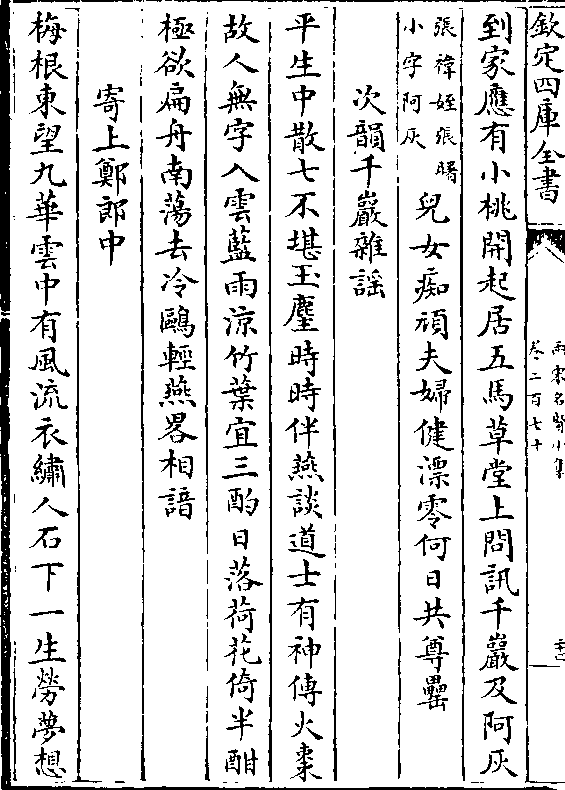 欽定四庫全書
兩宋名賢小集
卷二百七十
到家應有小桃開起居五馬草堂上問訊千巖及阿灰
張禕姪張曙
小字阿灰
兒女痴頑夫婦健漂零何日共尊罍
次韻千巖雜謡
平生中散七不堪玉麈時時伴燕談道士有神傳火棗
故人無字入雲藍雨涼竹葉宜三酌日落荷花倚半酣
極欲扁舟南蕩去冷鷗輕燕畧相諳
寄上鄭郎中
梅根東望九華雲中有風流衣繡人石下一生勞夢想